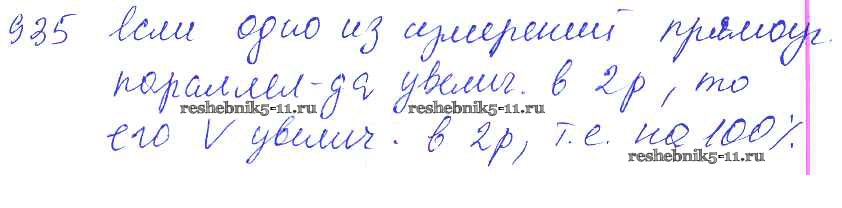 935 Если одно из измерений прямоуг.
параллел-да увелич. в 2р, то
reshebnik5-11.ru
его V увелич. в 2р, т.е. на 100%
reshebnik5-11.ru